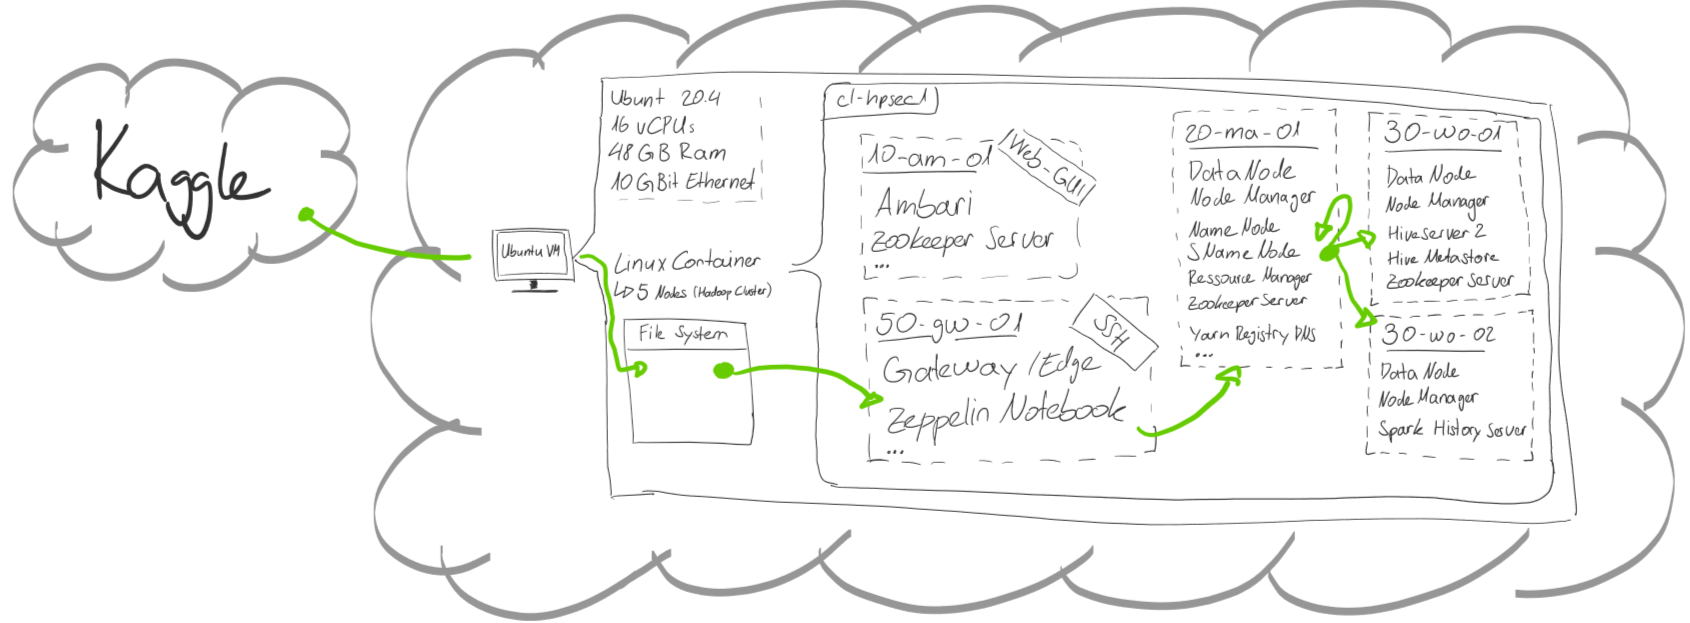 Kaggle
Ubuntu VM
Ubunt 20.4
16 vCPUs
48 GB Ram
10 GBit Ethernet
Linux Container
↳ 5 Nodes (Hadoop Cluster)
File System
cl-hpsec1
10-am-01
Web-GUI
Ambari
Zookeeper Server
...
50-gw-01
SSH
Gateway / Edge
Zeppelin Notebook
...
20-ma-01
Data Node
Node Manager
Name Node
SName Node
Ressource Manager
Zookeeper Server
Yarn Registry DNS
...
30-wo-01
Data Node
Node Manager
Hiveserver 2
Hive Metastore
Zookeeper Server
30-wo-02
Data Node
Node Manager
Spark History Server